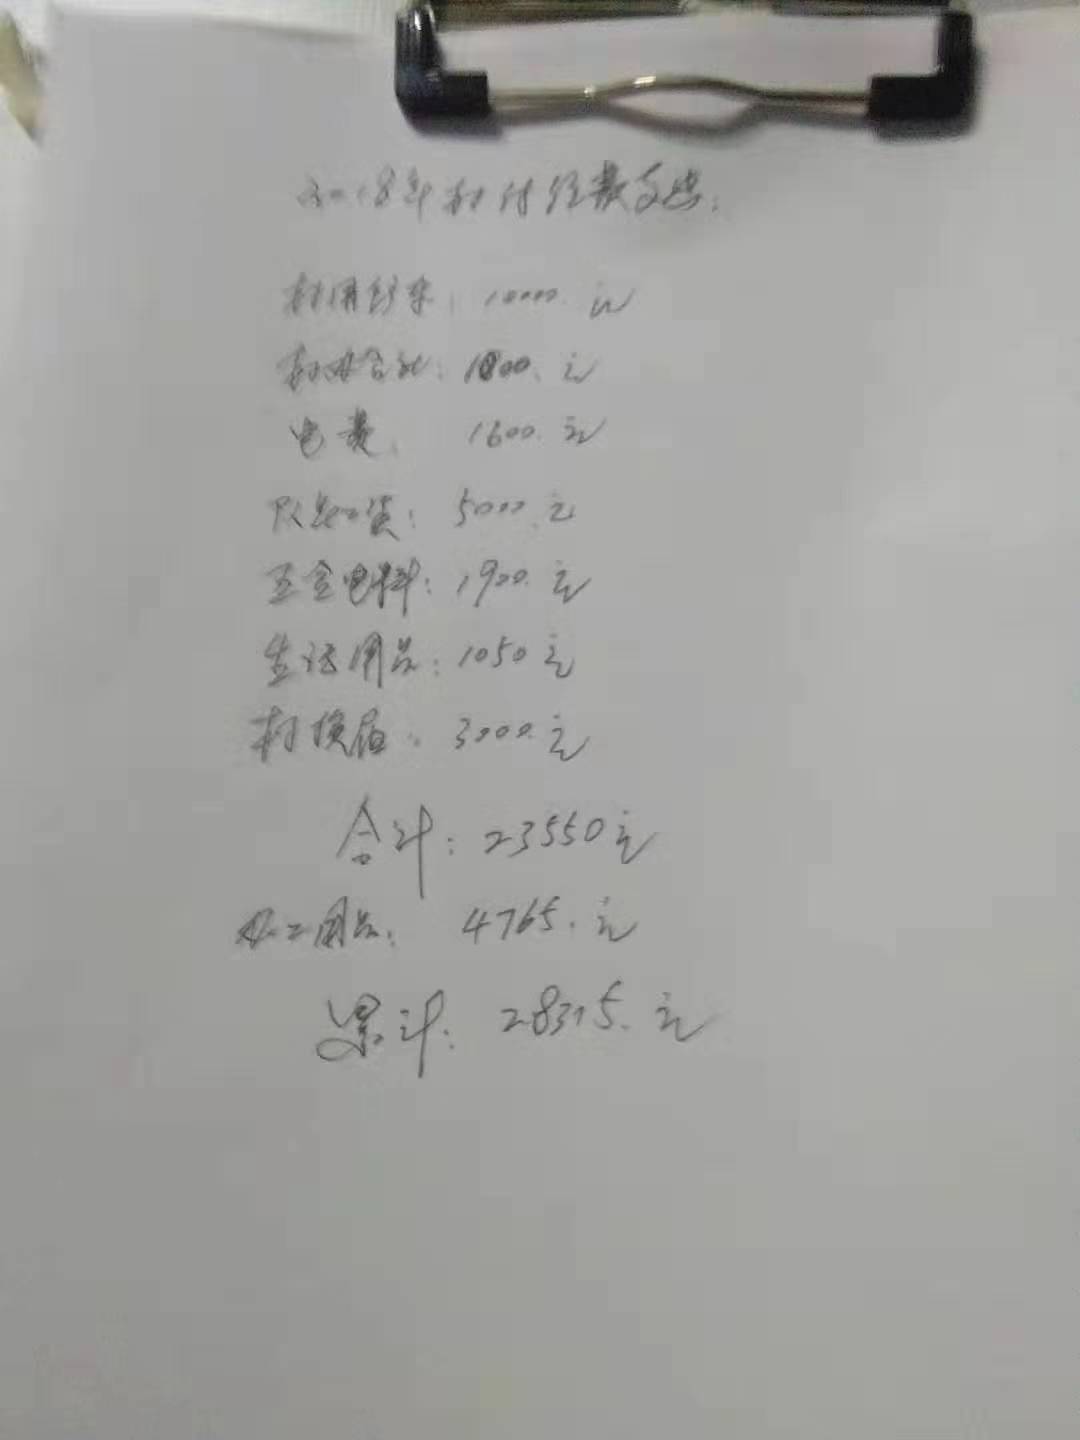 2018年村付经费支出:
村用 : 10000.元
村 : 1000.元
电费: 1600.元
工资: 5000.元
五金电料: 1900.元
生活用品: 1050元
村换届: 3000.元
合计: 23550元
用品: 4765.元
累计: 28315.元